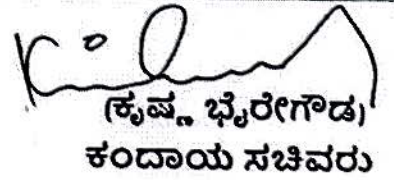 (ಕೃಷ್ಣ ಭೈರೇಗೌಡ)
ಕಂದಾಯ ಸಚಿವರು